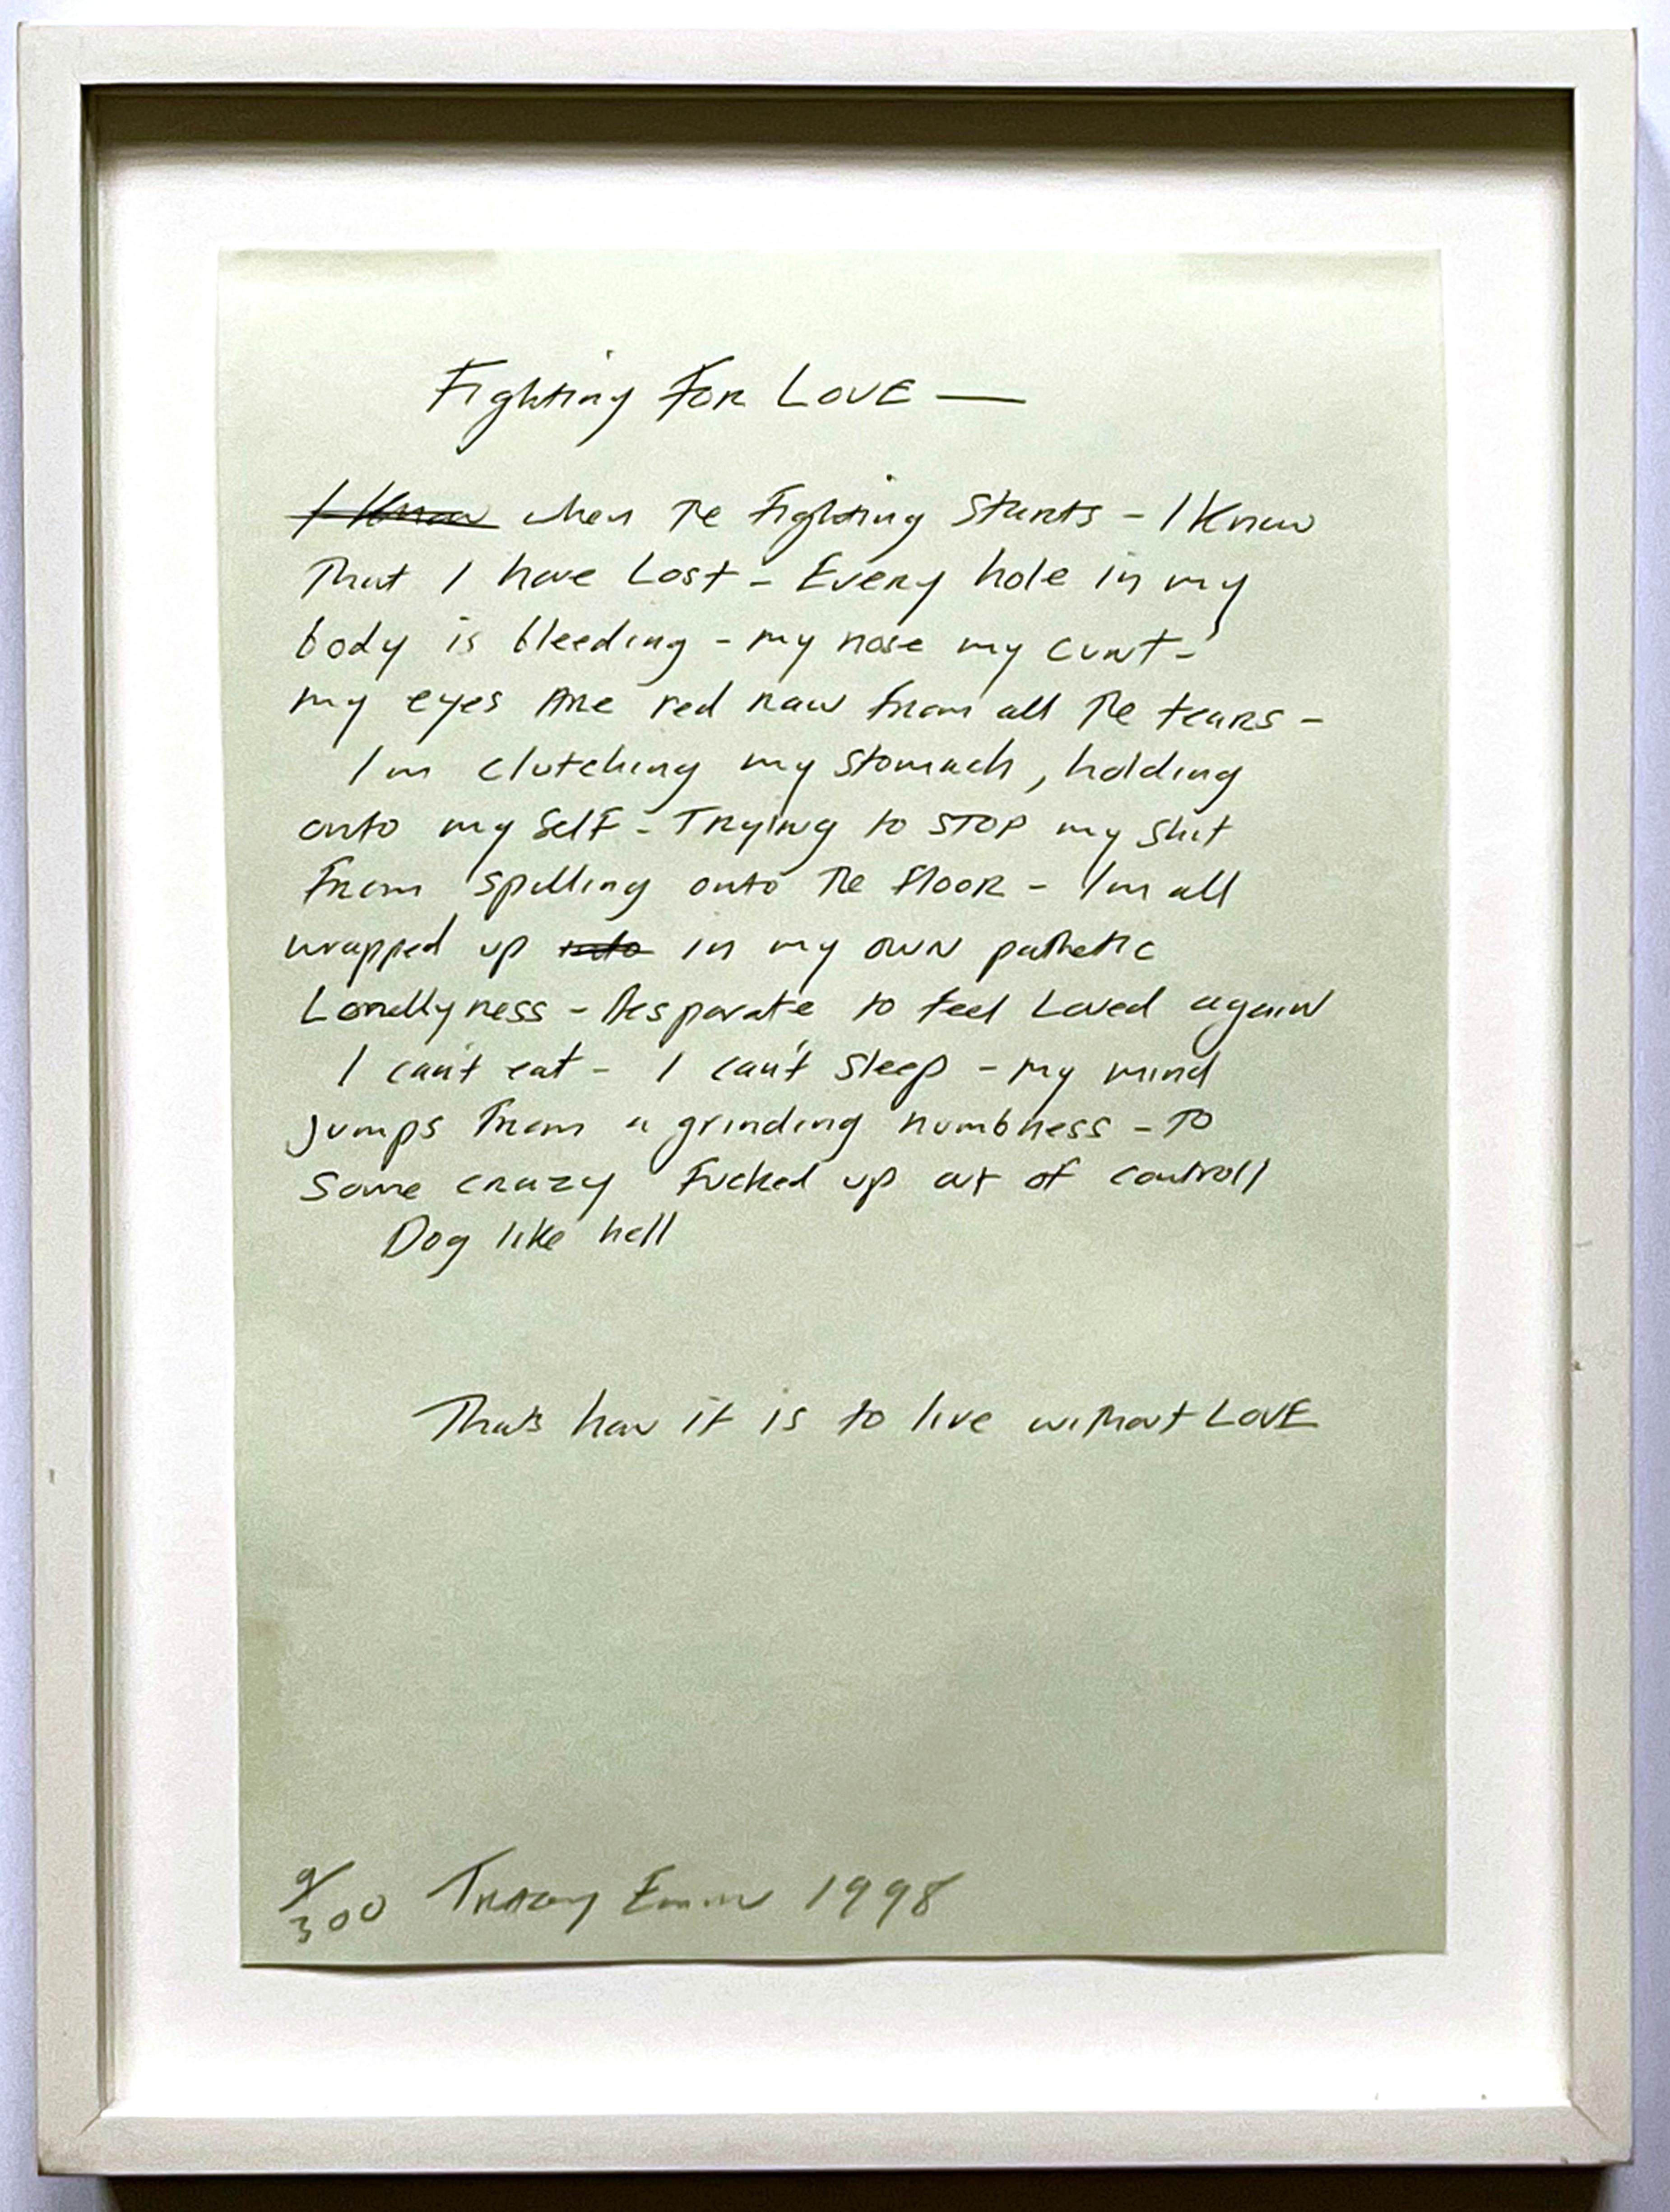 Fighting For LOVE —
I Know when The Fighting Starts – I Know
That I have Lost – Every hole in my
body is bleeding – my nose my cunt –
my eyes Are red raw from all The tears –
I'm clutching my stomach, holding
onto my Self – Trying to STOP my shit
From spilling onto The floor – I'm all
wrapped up into in my OWN pathetic
Lonellyness – Desparate to feel Loved again
I can't eat – I can't sleep – my mind
jumps from a grinding numbness – TO
some crazy Fucked up out of controll
Dog like hell
Thats how it is to live without LOVE
9/300 Tracey Emin 1998